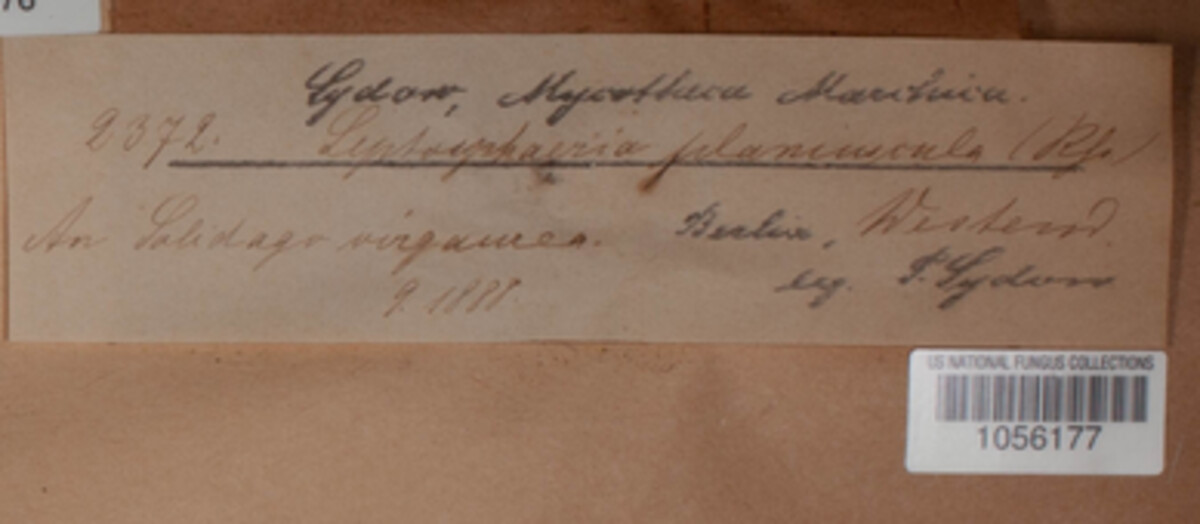 76
Sydow, Mycotheca Marchica.
2372. Leptosphaeria planiuscula (Rss)
An Solidago virgaurea. Berlin, Westend.
9. 1888. leg. P. Sydow
US NATIONAL FUNGUS COLLECTIONS
1056177